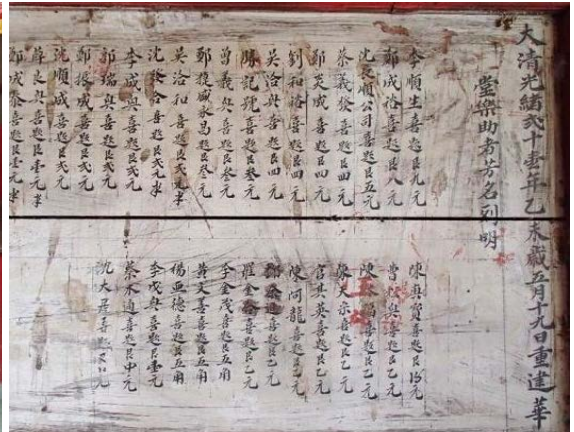 大清光緒弍十壹年乙未歲五月十九日重建華
堂樂助者芳名列明
李順生喜題艮九元
鄭成裕喜題艮八元
沈長順公司喜題艮五元
蔡義發喜題艮四元
鄭炎成喜題艮四元
劉和裕喜題艮四元
吳洽興喜題艮四元
陳記號喜題艮叁元
曾義興喜題艮叁元
鄭捷盛永昌題艮叁元
吳洽和喜題艮弍元半
沈發合喜題艮弍元半
李成興喜題艮弍元
郭瑞興喜題艮弍元
鄭振成喜題艮弍元
沈順成喜題艮弍元
薛良興喜題艮壹元半
鄭成發喜題艮壹元半
陳興賀喜題艮
曾炆興喜題艮乙元
陳 喜題艮乙元
大宗喜題艮乙元
官其英喜題艮乙元
陳阿龍喜題艮乙元
喜題艮乙元
羅金 喜題艮乙元
李金茂喜題艮五角
黃文喜喜題艮五角
楊亞德喜題艮五角
李成興喜題艮壹元
蔡木通喜題艮中元
沈大 喜題艮